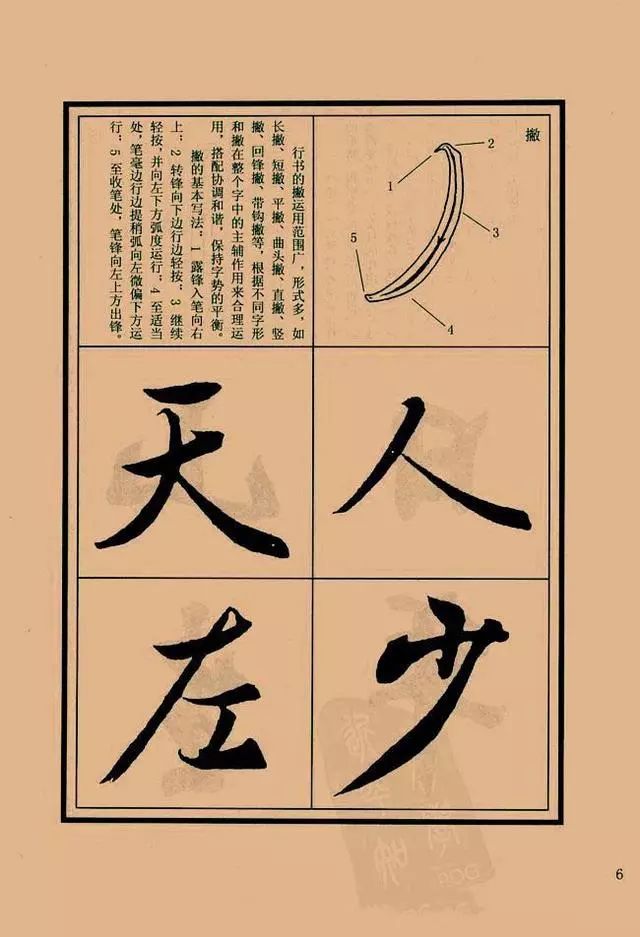 撇
2
1
3
5
4
行书的撇运用范围广，形式多，如
长撇、短撇、平撇、曲头撇、直撇、竖
撇、回锋撇、带钩撇等，根据不同字形
和撇在整个字中的主辅作用来合理运
用，搭配协调和谐，保持字势的平衡。
撇的基本写法：1 露锋入笔向右
上；2 转锋向下边行边轻按；3 继续
轻按，并向左下方弧度运行；4 至适当
处，笔毫边行边提稍弧向左微偏下方运
行；5 至收笔处，笔锋向左上方出锋。
人
天
少
左
6